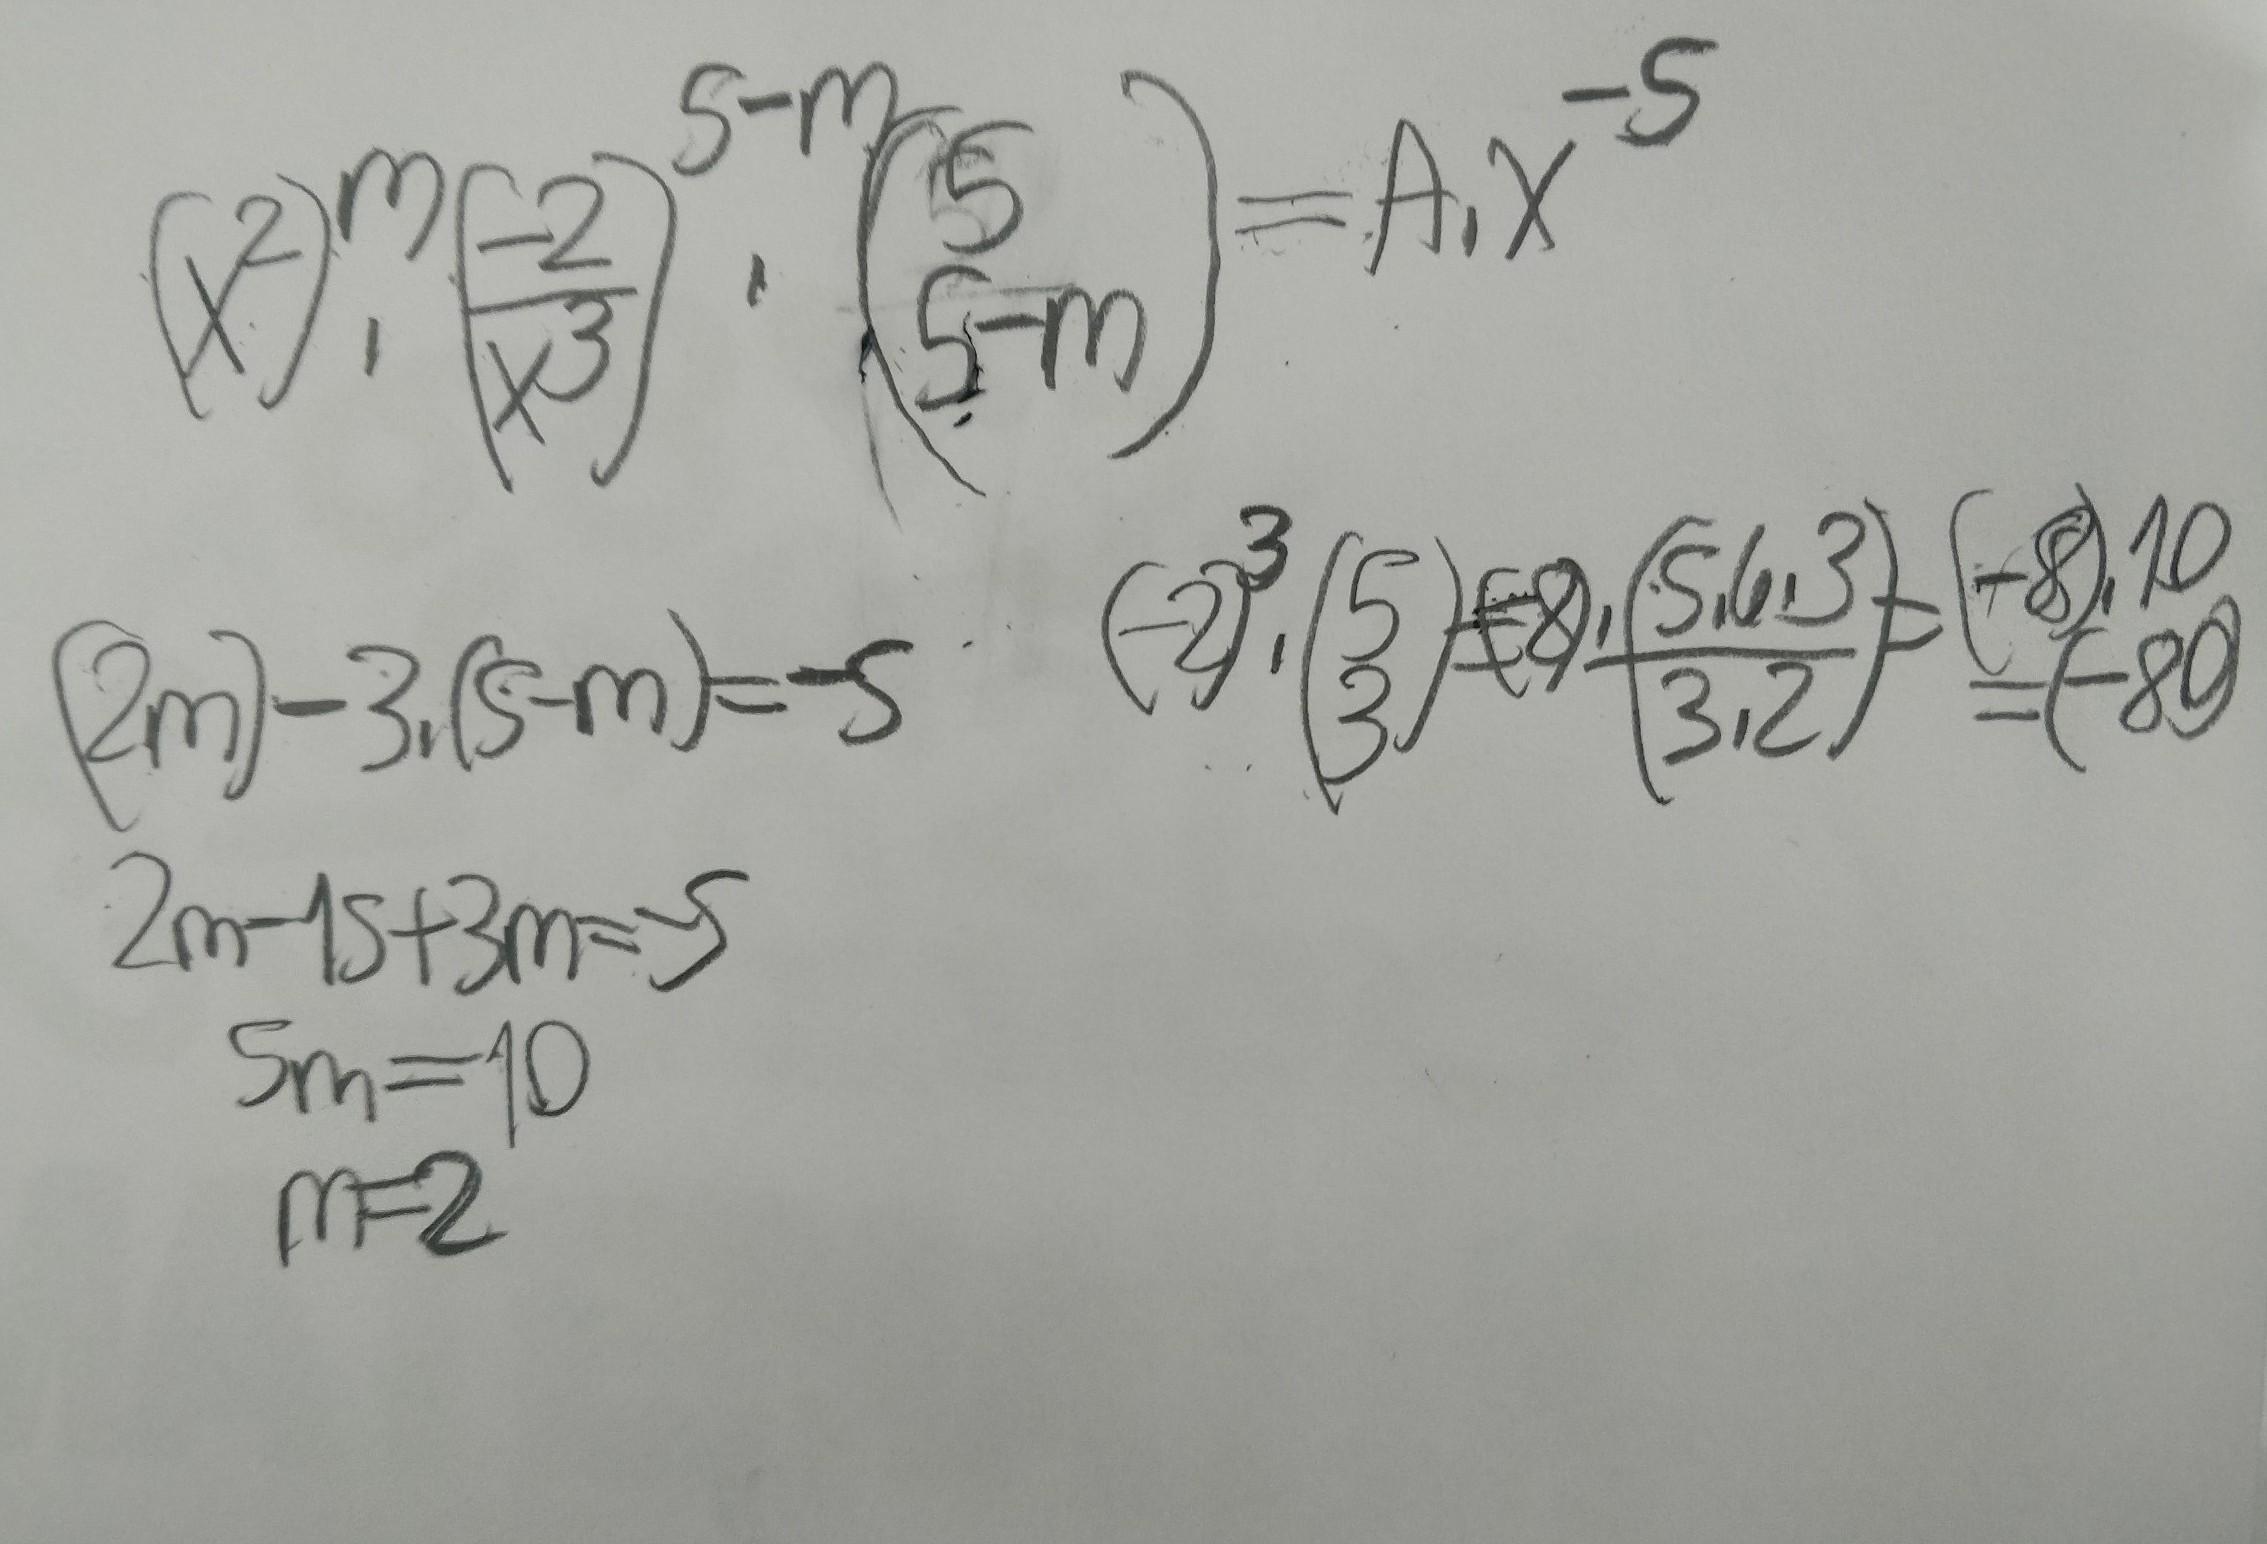 (x²)^m . (-2/x³)^(5-m) . (5 / 5-m) = A.x^-5
(2m)-3.(5-m)=-5
2m-15+3m=-5
5m=10
m=2
(-2)³.(5 / 3)=(-8).(5.4.3 / 3.2)=(-8).10
=(-80)